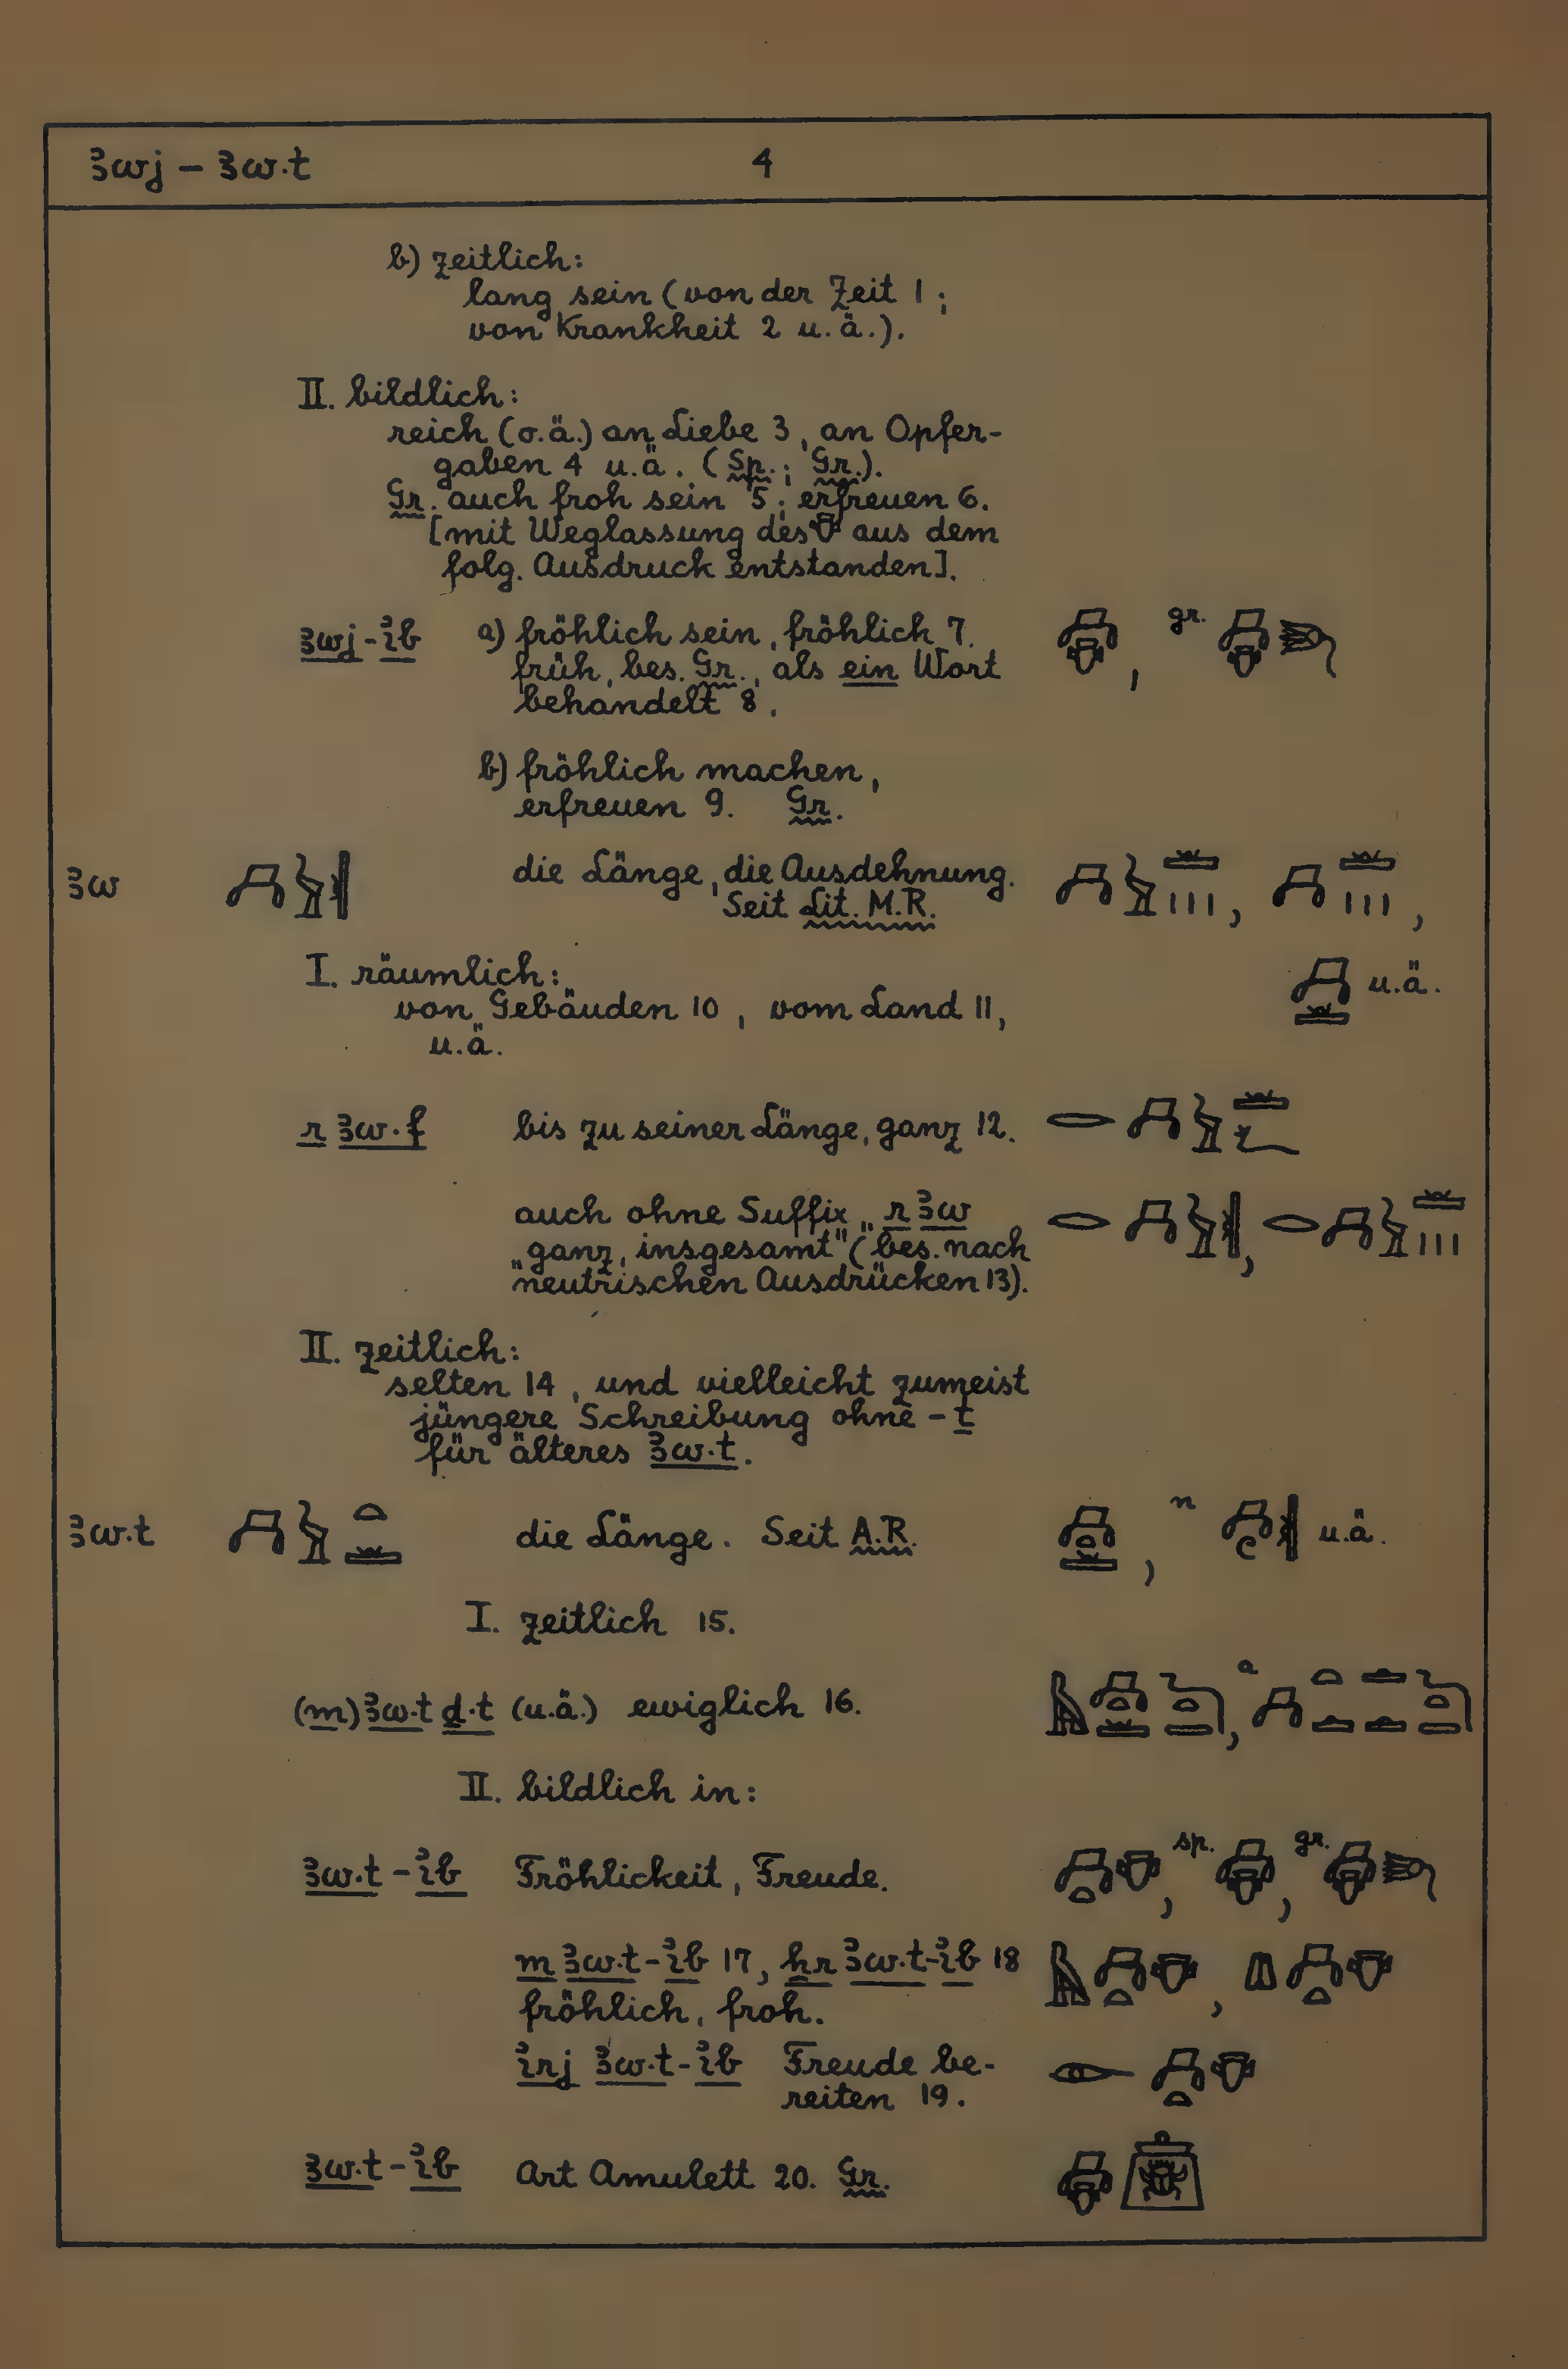 ꜣwj – ꜣw.t 4
b) zeitlich:
lang sein (von der Zeit 1;
von Krankheit 2 u.ä.).
II. bildlich:
reich (o.ä.) an Liebe 3, an Opfer-
gaben 4 u.ä. (Sp.; Gr.).
Gr. auch froh sein 5; erfreuen 6.
[mit Weglassung des 𓄣 aus dem
folg. Ausdruck entstanden].
ꜣwj-ỉb a) fröhlich sein, fröhlich 7. gr.
früh, bes. Gr., als ein Wort
behandelt 8.
b) fröhlich machen,
erfreuen 9. Gr.
ꜣw die Länge, die Ausdehnung.
Seit Lit. M.R.
I. räumlich: u.ä.
von Gebäuden 10, vom Land 11,
u.ä.
r ꜣw.f bis zu seiner Länge, ganz 12.
auch ohne Suffix „r ꜣw
„ganz, insgesamt" (bes. nach
neutrischen Ausdrücken 13).
II. zeitlich:
selten 14, und vielleicht zumeist
jüngere Schreibung ohne -t
für älteres ꜣw.t.
ꜣw.t die Länge. Seit A.R. n u.ä.
I. zeitlich 15.
(m) ꜣw.t ḏ.t (u.ä.) ewiglich 16. a
II. bildlich in:
ꜣw.t-ỉb Fröhlickeit, Freude. sp. gr.
m ꜣw.t-ỉb 17, ẖr ꜣw.t-ỉb 18
fröhlich, froh.
ỉrj ꜣw.t-ỉb Freude be-
reiten 19.
ꜣw.t-ỉb Art Amulett 20. Gr.